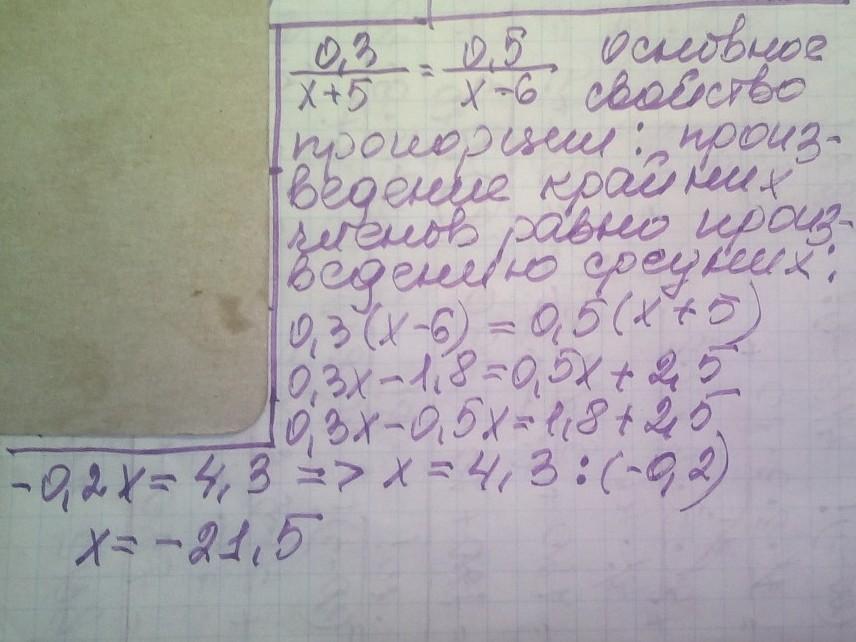 0,3/x+5 = 0,5/x-6 основное
свойство
пропорции: произ-
ведение крайних
членов равно произ-
ведению средних:
0,3(x-6) = 0,5(x+5)
0,3x-1,8=0,5x+2,5
0,3x-0,5x=1,8+2,5
-0,2x= 4,3 => x= 4,3 :(-0,2)
x= -21,5